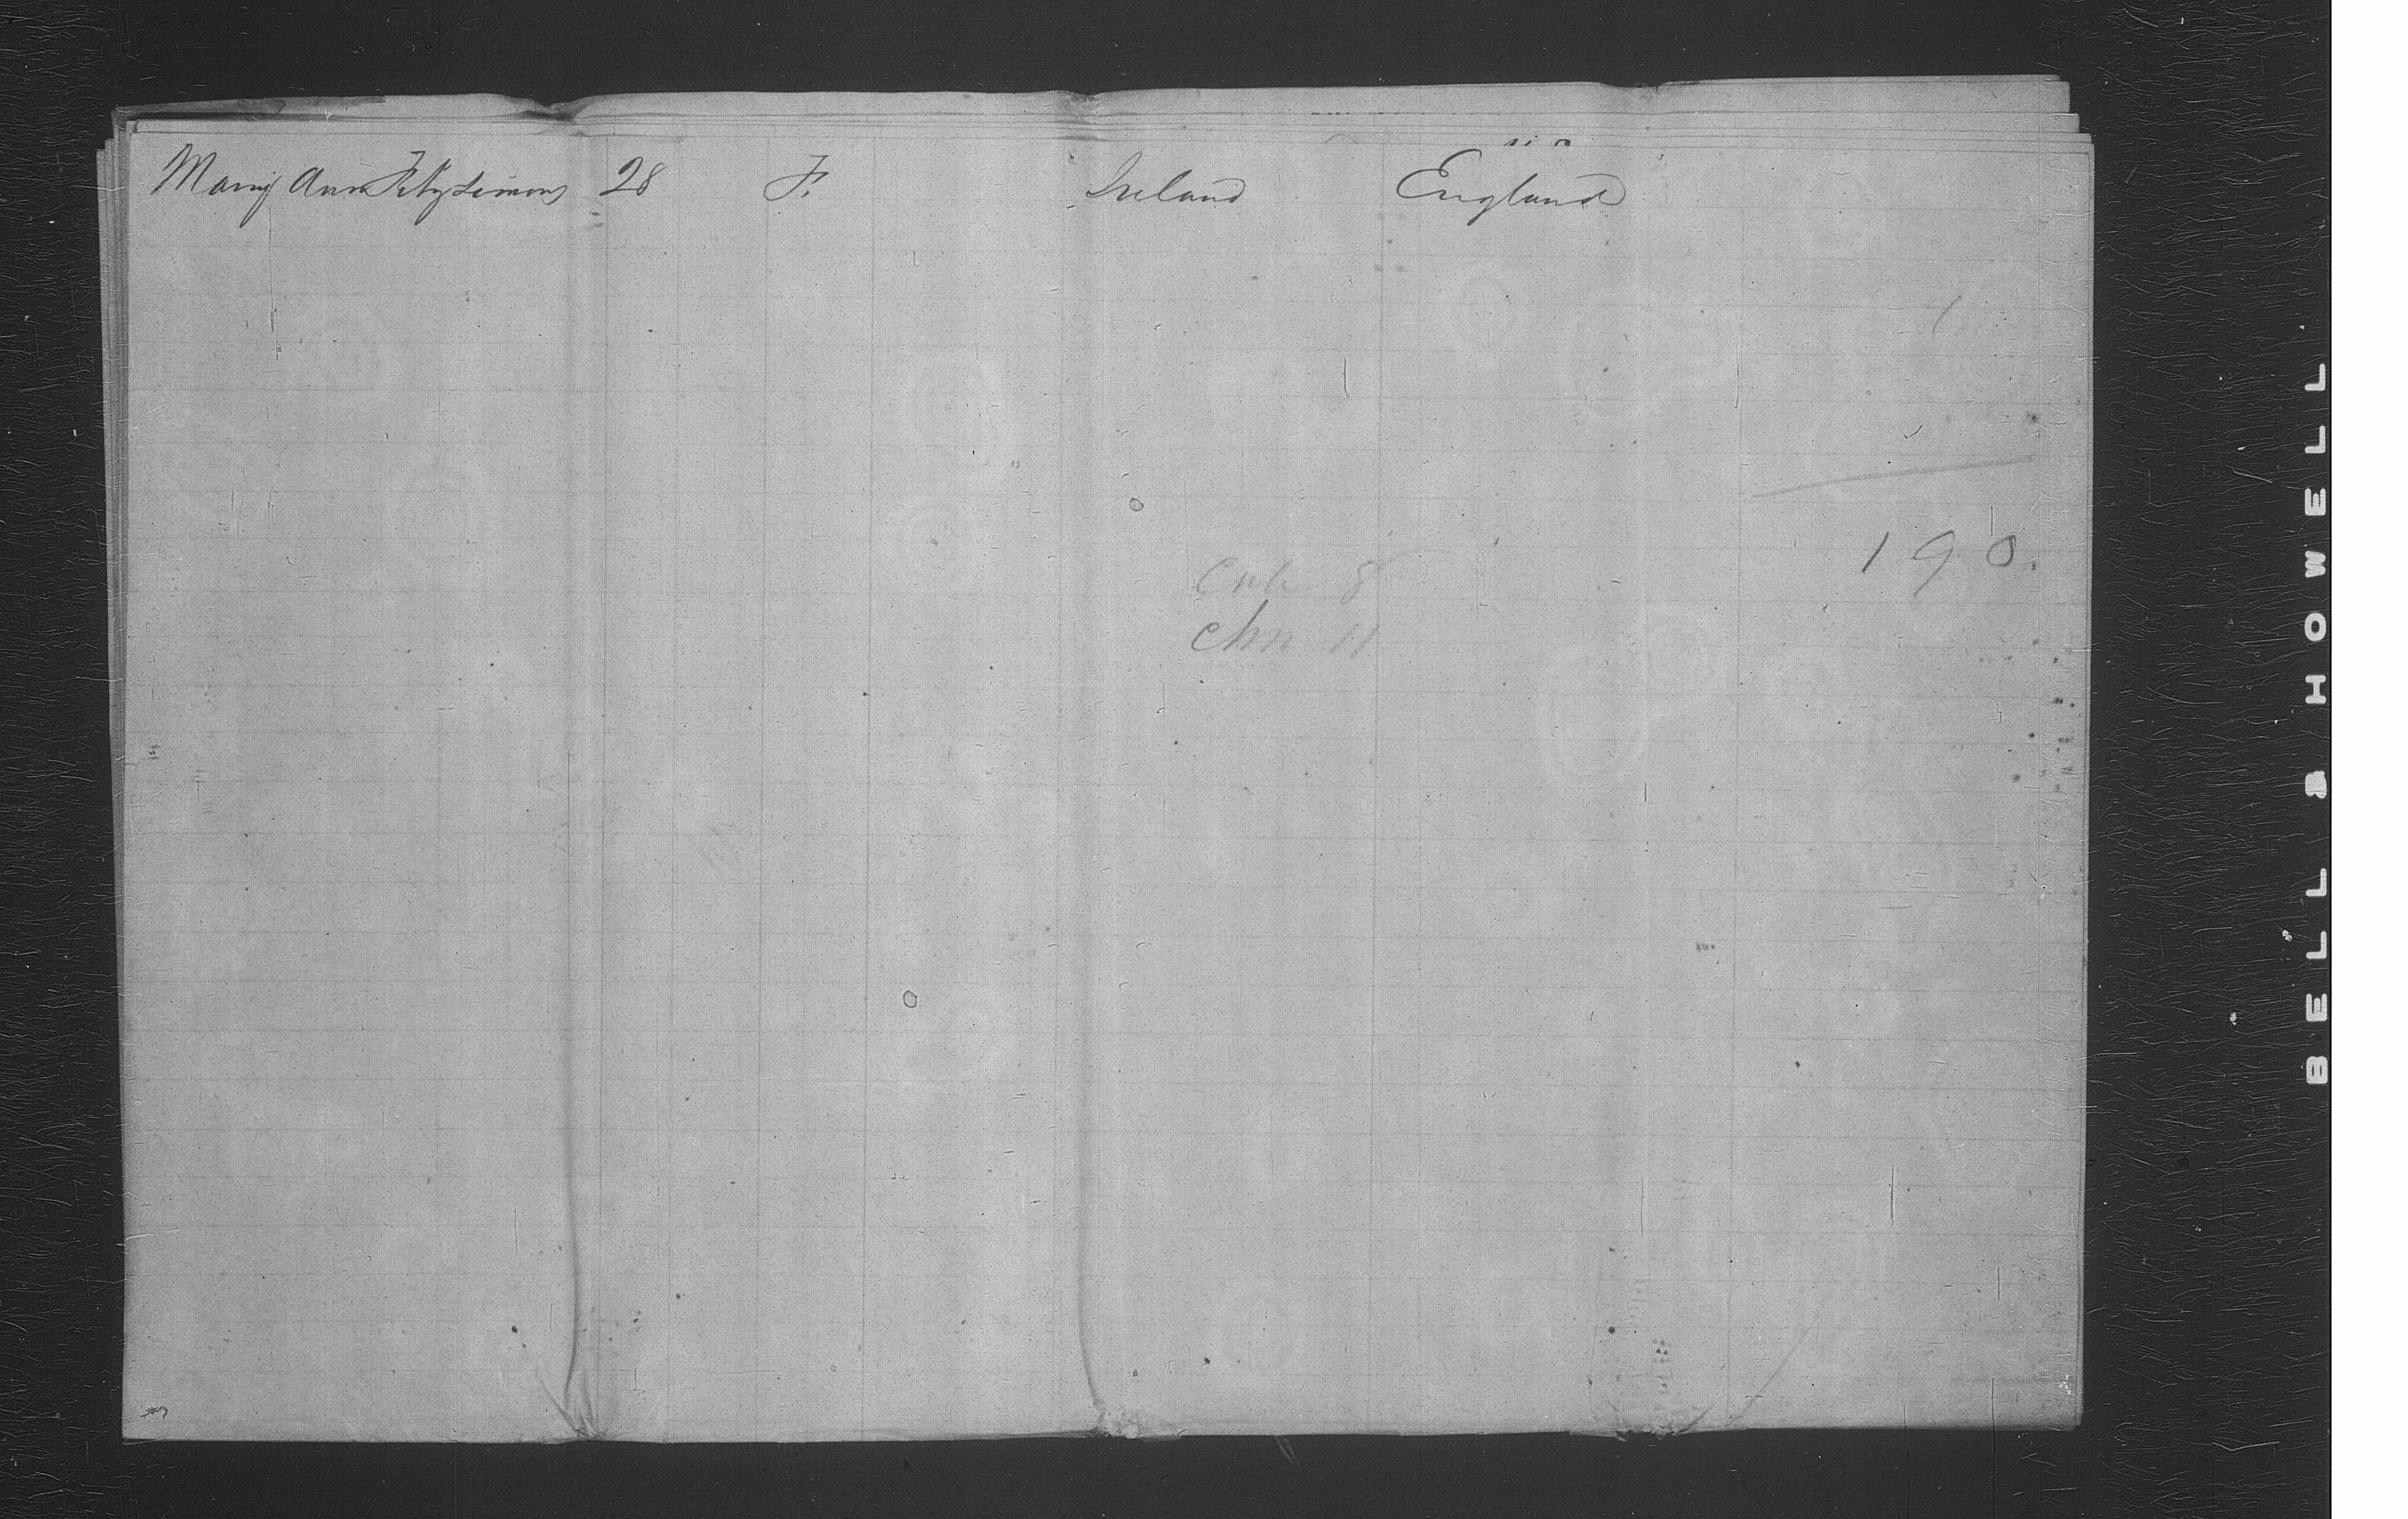 Mary Ann Fitzsimons 28 F. Ireland England
1
190
8
Chn 11
BELL & HOWELL